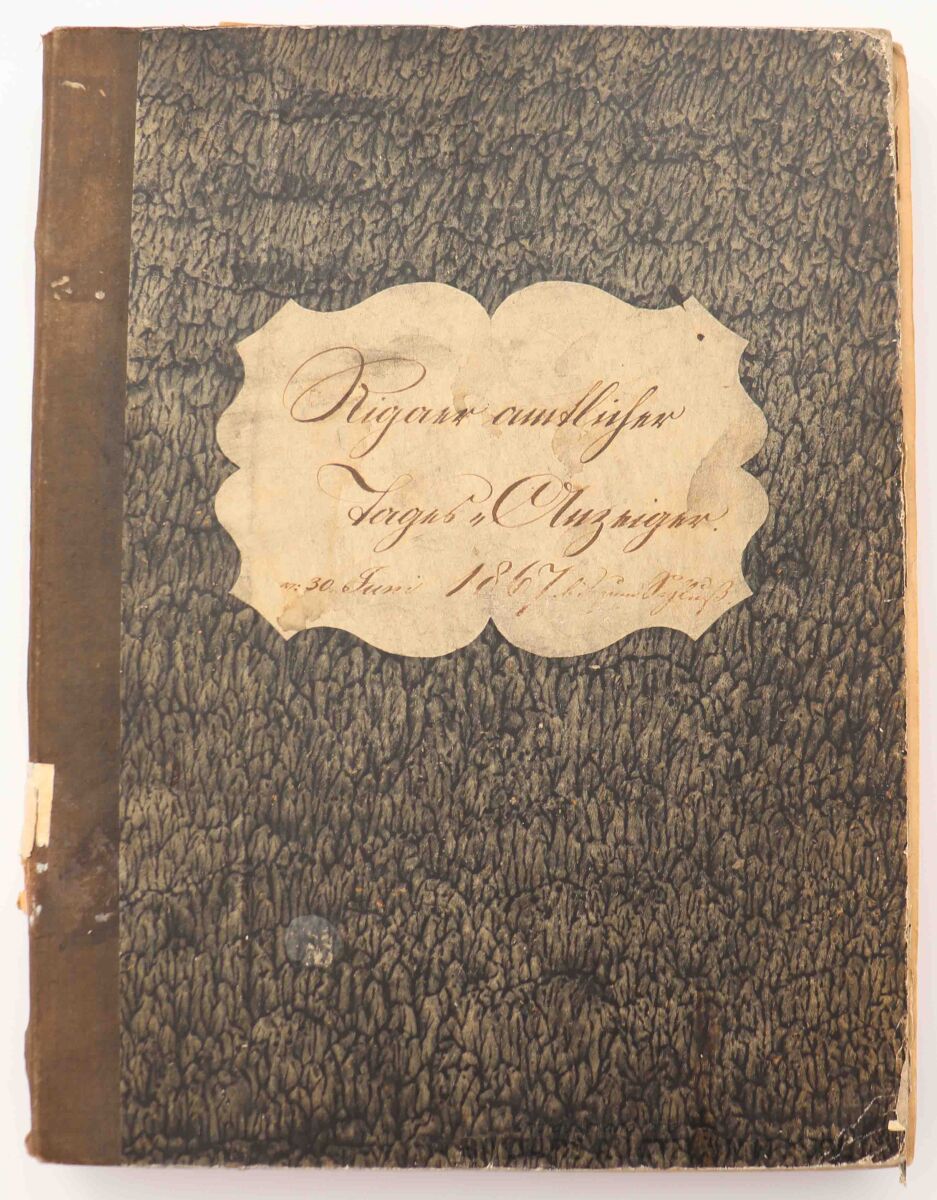 Rigaer amtlicher
Tages-Anzeiger.
v: 30. Juni 1867 bis zum Schluß